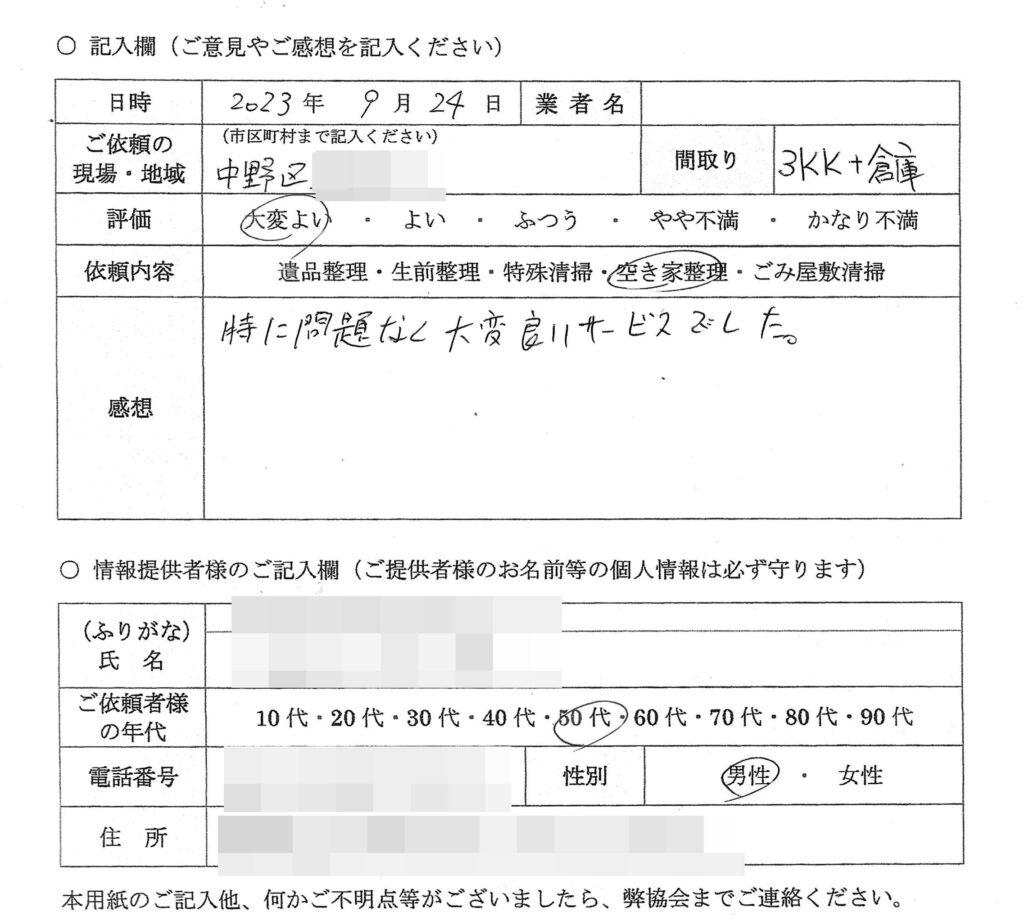 ○ 記入欄（ご意見やご感想を記入ください）
日時 2023年 9月 24日 業者名
ご依頼の現場・地域 （市区町村まで記入ください） 中野区 間取り 3KK+倉庫
評価 大変よい ・ よい ・ ふつう ・ やや不満 ・ かなり不満
依頼内容 遺品整理・生前整理・特殊清掃・空き家整理・ごみ屋敷清掃
感想 特に問題なく大変良いサービスでした。
○ 情報提供者様のご記入欄（ご提供者様のお名前等の個人情報は必ず守ります）
（ふりがな）
氏 名
ご依頼者様の年代 10代・20代・30代・40代・50代・60代・70代・80代・90代
電話番号 性別 男性 ・ 女性
住 所
本用紙のご記入他、何かご不明点等がございましたら、弊協会までご連絡ください。